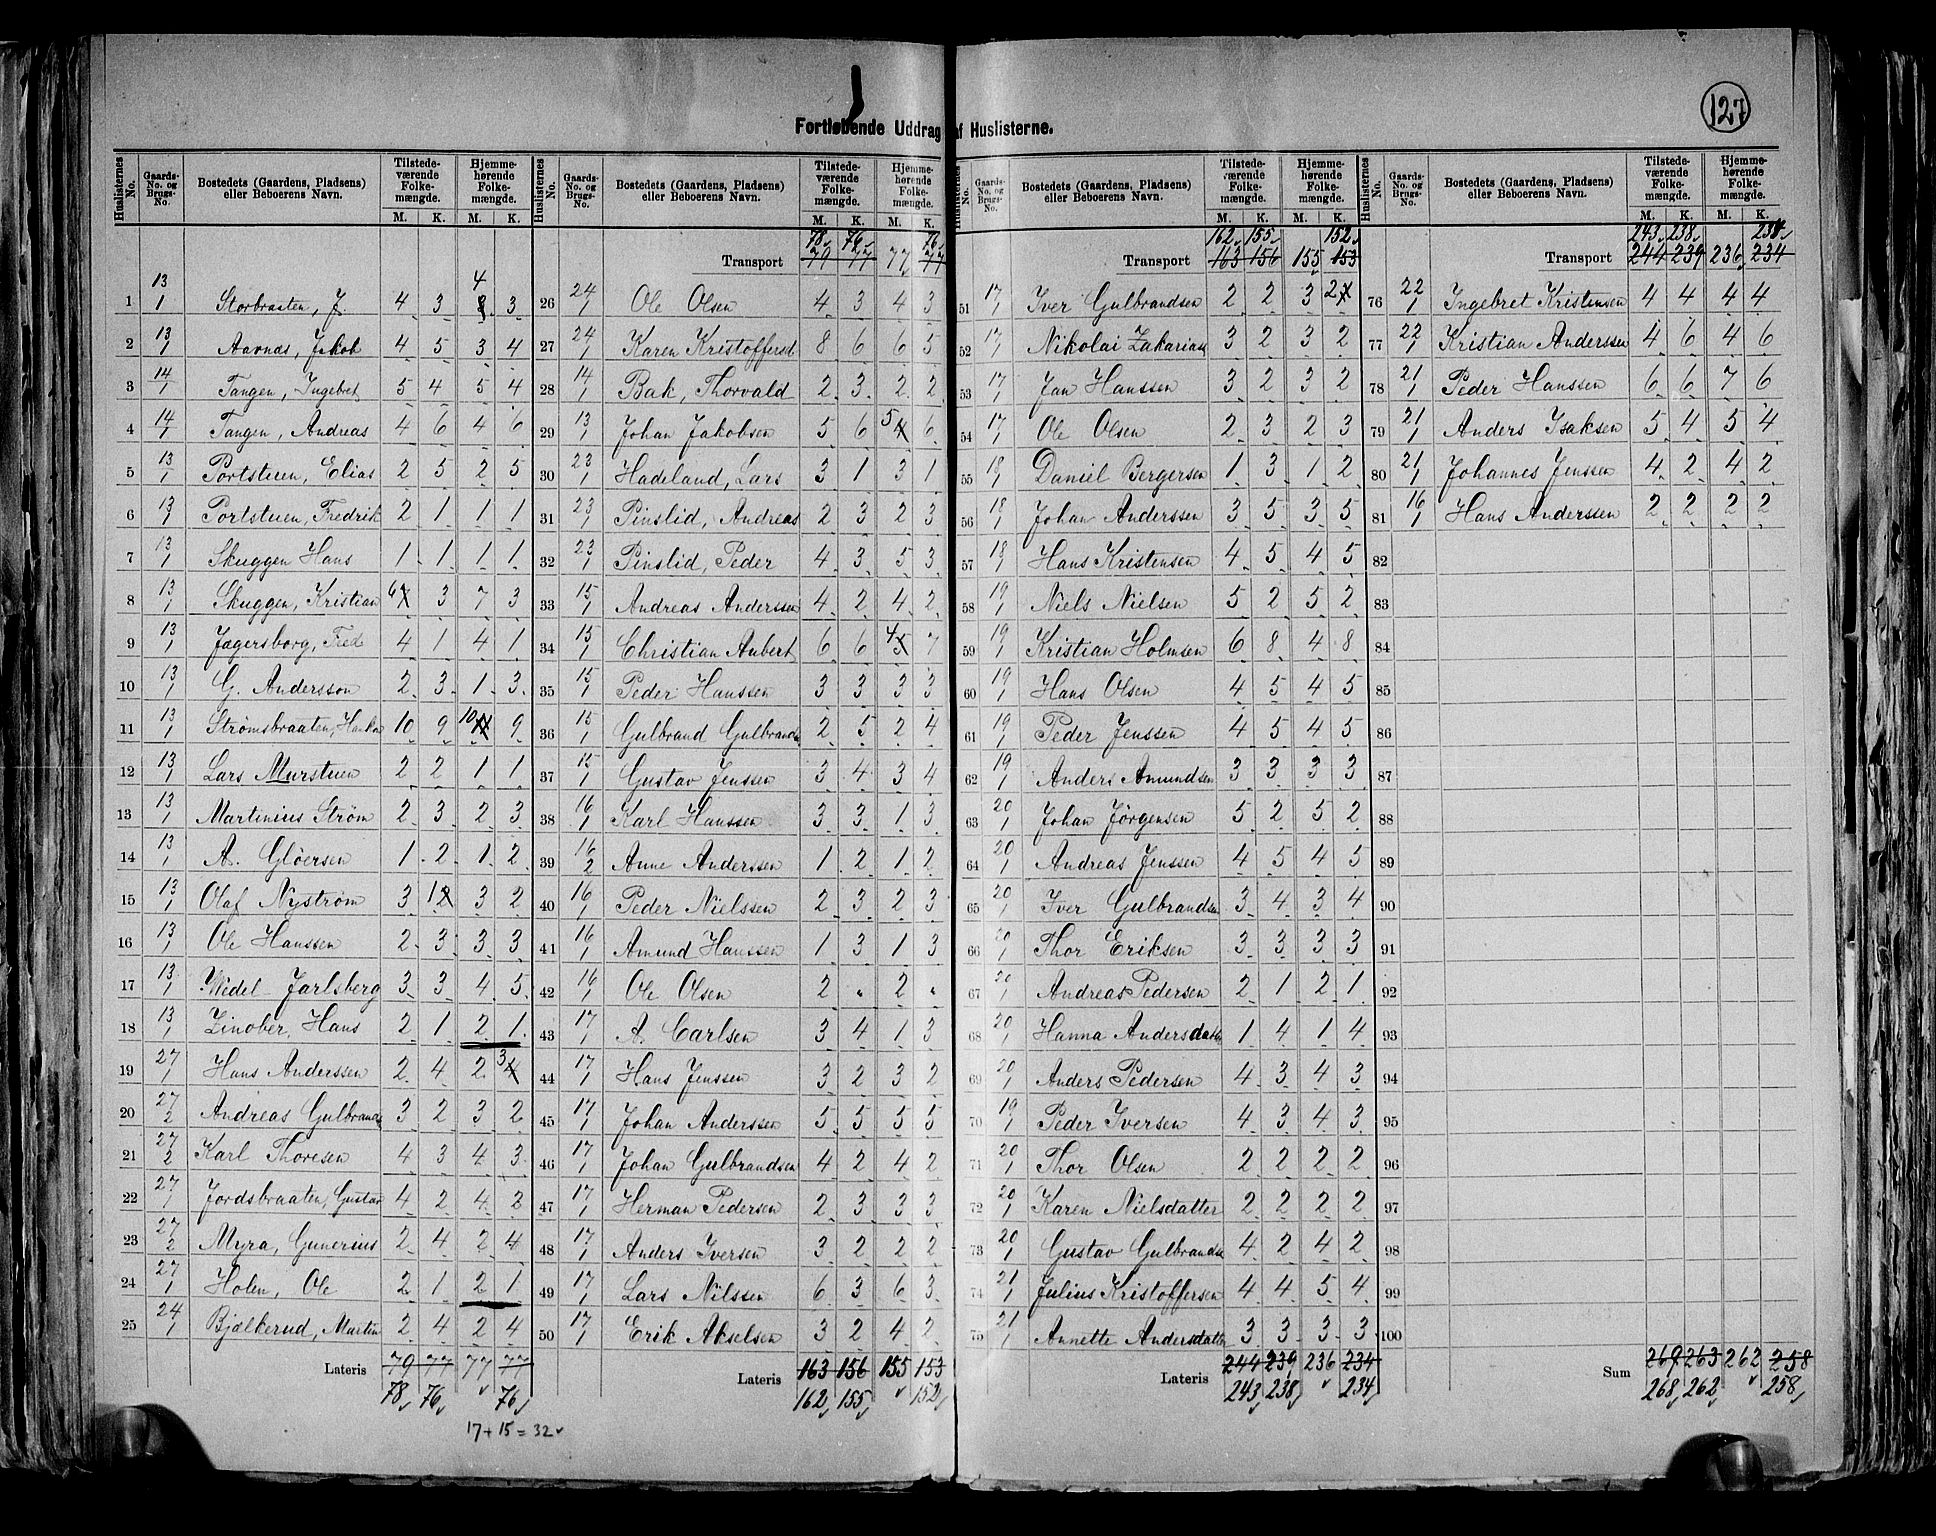 127
Fortløbende Uddrag af Huslisterne.
Huslisternes No. Gaards-No. og Brugs-No. Bostedets (Gaardens, Pladsens) eller Beboerens Navn. Tilstedeværende Folkemængde. M. K. Hjemmehørende Folkemængde. M. K.
1 13/1 Storbraaten, J. 4 3 4 3
2 13/1 Aavnæs, Jakob 4 5 3 4
3 14/1 Tangen, Ingebret 5 4 5 4
4 14/1 Tangen, Andreas 4 6 4 6
5 13/1 Portstuen, Elias 2 5 2 5
6 13/1 Portstuen, Fredrik 2 1 1 1
7 13/1 Skuggen Hans 1 1 1 1
8 13/1 Skuggen, Kristian 6 3 7 3
9 13/1 Jægersborg, Fred 4 1 4 1
10 13/1 G. Andersson 2 3 1 3
11 13/1 Strømsbraaten, 10 9 10 9
12 13/1 Lars Murstuen 2 2 1 1
13 13/1 Martinius Strøm 2 3 2 3
14 13/1 A. Gløersen 1 2 1 2
15 13/1 Olaf Nystrøm 3 1 3 2
16 13/1 Ole Hanssen 2 3 3 3
17 13/1 Wedel Jarlsberg 3 3 4 5
18 13/1 Zinober, Hans 2 1 2 1
19 27/1 Hans Anderssen 2 4 2 3
20 27/2 Andreas Gulbrands 3 2 3 2
21 27/2 Karl Thoresen 4 3 4 3
22 27/1 Jordsbraaten, Gustav 4 2 4 2
23 27/2 Myra, Gunerius 2 4 2 4
24 27/1 Holen, Ole 2 1 2 1
25 24/1 Bjælkerud, Martin 2 4 2 4
Lateris 79 77 77 77
78 76 76
17 + 15 = 32
Huslisternes No. Gaards-No. og Brugs-No. Bostedets (Gaardens, Pladsens) eller Beboerens Navn. Tilstedeværende Folkemængde. M. K. Hjemmehørende Folkemængde. M. K.
78 76 76
Transport 79 77 77 77
26 24/1 Ole Olsen 4 3 4 3
27 24/1 Karen Kristoffersd 8 6 6 5
28 14/1 Bak, Thorvald 2 3 2 2
29 13/1 Johan Jakobsen 5 6 5 6
30 23/1 Hadeland, Lars 3 1 3 1
31 23/1 Pinslid, Andreas 2 3 2 3
32 23/1 Pinslid, Peder 4 3 5 3
33 15/1 Andreas Anderssen 4 2 4 2
34 15/1 Christian Aubert 6 6 4 7
35 15/1 Peder Hanssen 3 3 3 3
36 15/1 Gulbrand Gulbrands 2 5 2 4
37 15/1 Gustav Jenssen 3 4 3 4
38 16/1 Karl Hanssen 3 3 1 3
39 16/2 Anne Anderssen 1 2 1 2
40 16/1 Peder Nielssen 2 3 2 3
41 16/1 Amund Hanssen 1 3 1 3
42 16/1 Ole Olsen 2 " 2 "
43 17/1 A. Carlsen 3 4 1 3
44 17/1 Hans Jenssen 3 2 3 2
45 17/1 Johan Anderssen 5 5 5 5
46 17/1 Johan Gulbrandsen 4 2 4 2
47 17/1 Herman Pedersen 2 3 3 3
48 17/1 Anders Iversen 3 2 2 2
49 17/1 Lars Nilssen 6 3 6 3
50 17/1 Erik Akselsen 3 2 4 2
Lateris 163 156 155 153
162 155 152
Huslisternes No. Gaards-No. og Brugs-No. Bostedets (Gaardens, Pladsens) eller Beboerens Navn. Tilstedeværende Folkemængde. M. K. Hjemmehørende Folkemængde. M. K.
162 155 152
Transport 163 156 155 153
51 17/1 Iver Gulbrandsen 2 2 3 2
52 17/1 Nikolai Zakarias 3 2 3 2
53 17/1 Jan Hanssen 3 2 3 2
54 17/1 Ole Olsen 2 3 2 3
55 18/1 Daniel Bergersen 1 3 1 2
56 18/1 Johan Anderssen 3 5 3 5
57 18/1 Hans Kristensen 4 5 4 5
58 19/1 Niels Nielsen 5 2 5 2
59 19/1 Kristian Holmsen 6 8 4 8
60 19/1 Hans Olsen 4 5 4 5
61 19/1 Peder Jenssen 4 5 4 5
62 19/1 Anders Amundsen 3 3 3 3
63 20/1 Johan Jørgensen 5 2 5 2
64 20/1 Andreas Jenssen 4 5 4 5
65 20/1 Iver Gulbrandsen 3 4 3 4
66 20/1 Thor Eriksen 3 3 3 3
67 20/1 Andreas Pedersen 2 1 2 1
68 20/1 Hanna Andersdatter 1 4 1 4
69 20/1 Anders Pedersen 4 3 4 3
70 19/1 Peder Iversen 4 3 4 3
71 20/1 Thor Olsen 2 2 2 2
72 20/1 Karen Nielsdatter 2 2 2 2
73 20/1 Gustav Gulbrandsen 4 2 4 2
74 21/1 Julius Kristoffersen 4 4 5 4
75 21/1 Annette Andersdatter 3 3 3 3
Lateris 244 239 236 234
243 238 234
Huslisternes No. Gaards-No. og Brugs-No. Bostedets (Gaardens, Pladsens) eller Beboerens Navn. Tilstedeværende Folkemængde. M. K. Hjemmehørende Folkemængde. M. K.
243 238
Transport 244 239 236 234
76 22/1 Ingebret Kristensen 4 4 4 4
77 22/1 Kristian Anderssen 4 6 4 6
78 21/1 Peder Hanssen 6 6 7 6
79 21/1 Anders Isaksen 5 4 5 4
80 21/1 Johannes Jenssen 4 2 4 2
81 16/1 Hans Anderssen 2 2 2 2
82
83
84
85
86
87
88
89
90
91
92
93
94
95
96
97
98
99
100
Sum 269 263 262 258
268 262 258